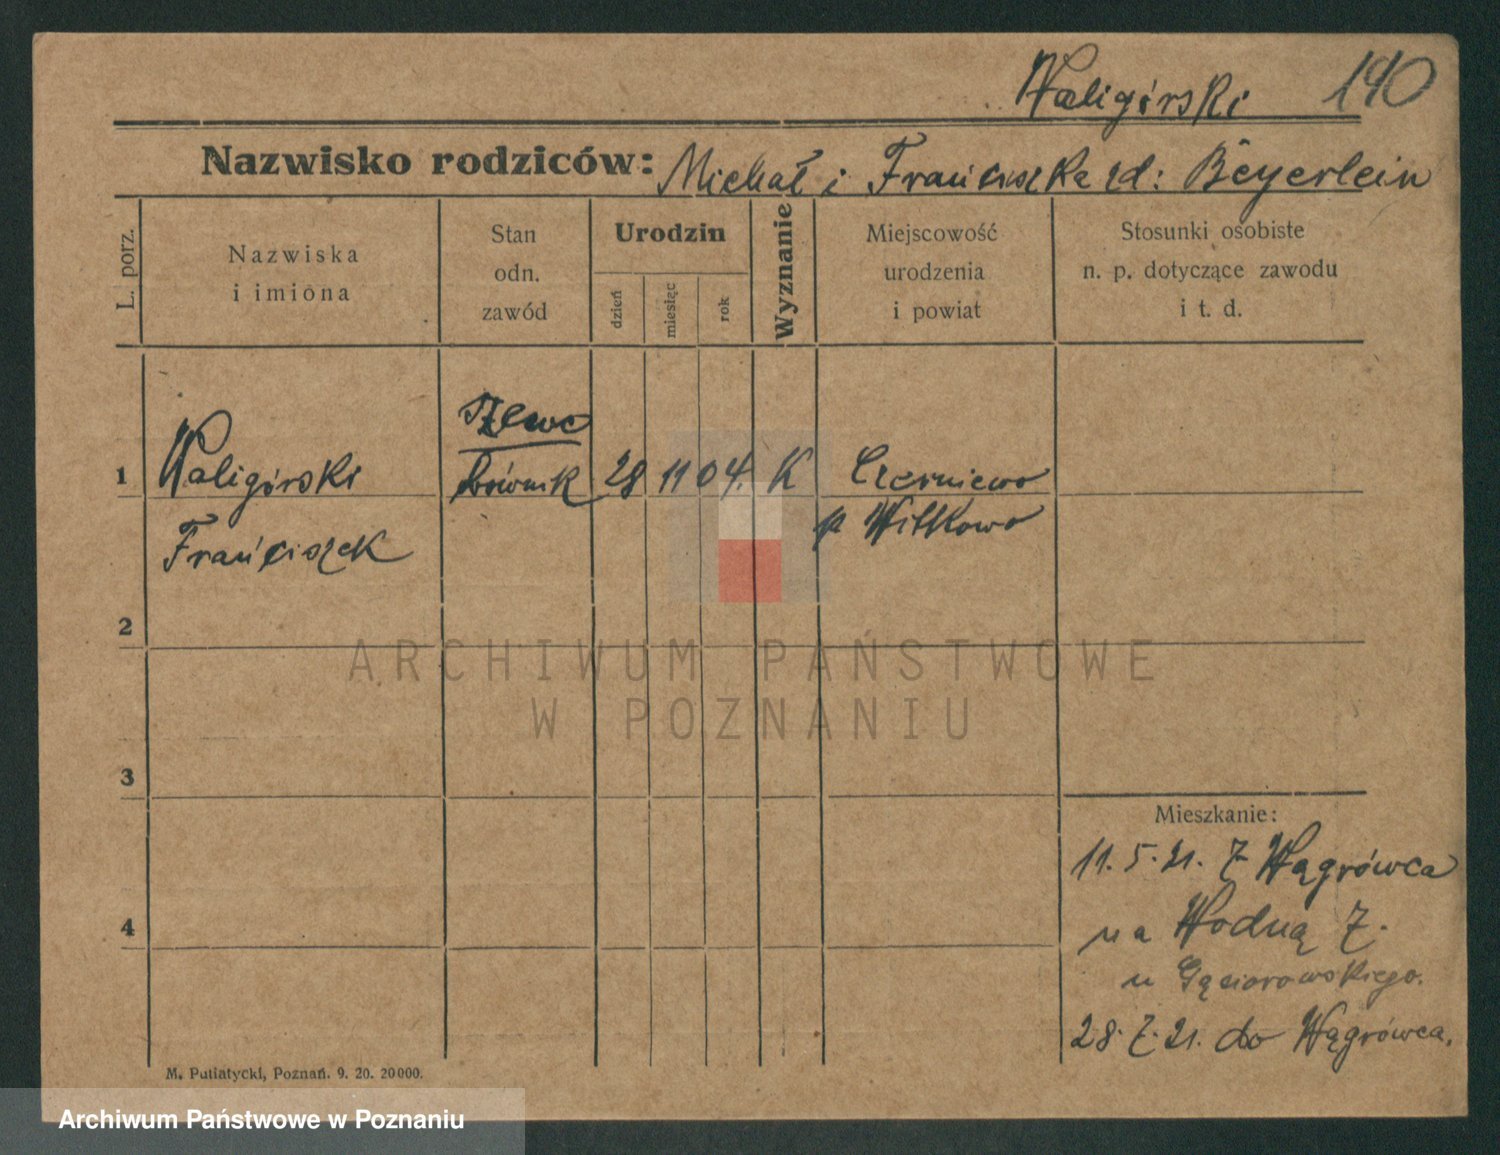 Waligórski 140
Nazwisko rodziców: Michał i Franciszka rd: Beyerlein
L. porz.
Nazwiska
i imiona
Stan
odn.
zawód
Urodzin
dzień
miesiąc
rok
Wyznanie
Miejscowość
urodzenia
i powiat
Stosunki osobiste
n. p. dotyczące zawodu
i t. d.
1 Waligórski
Franciszek
Szewc
28 11 04. K
Czerniewo
p Witkowo
2
3
4
ARCHIWUM PAŃSTWOWE
W POZNANIU
Mieszkanie:
11. 5. 21. Z Wągrówca
na Wodną 7.
u Gąsiorowskiego.
28. 7. 21. do Wągrówca.
M. Putiatycki, Poznań. 9. 20. 20000.
Archiwum Państwowe w Poznaniu